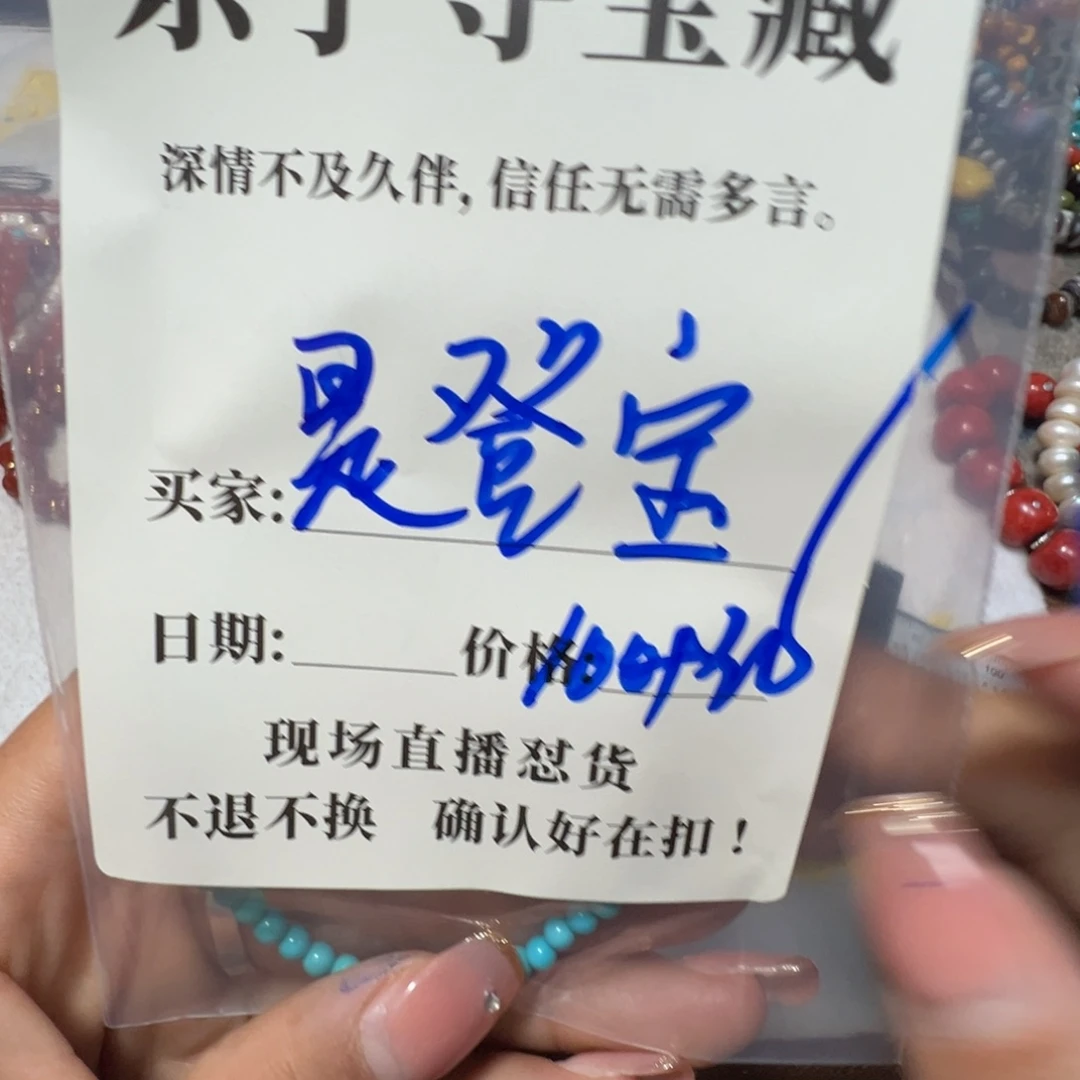 寻宝藏
深情不及久伴，信任无需多言。
买家：是登宝
日期： 价格：100+30
现场直播怼货
不退不换 确认好在扣！